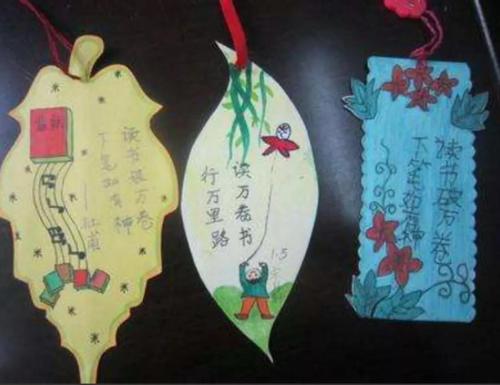 读书破万卷
下笔如有神
——杜甫
读万卷书
行万里路
1.5
读书破万卷
下笔如有神